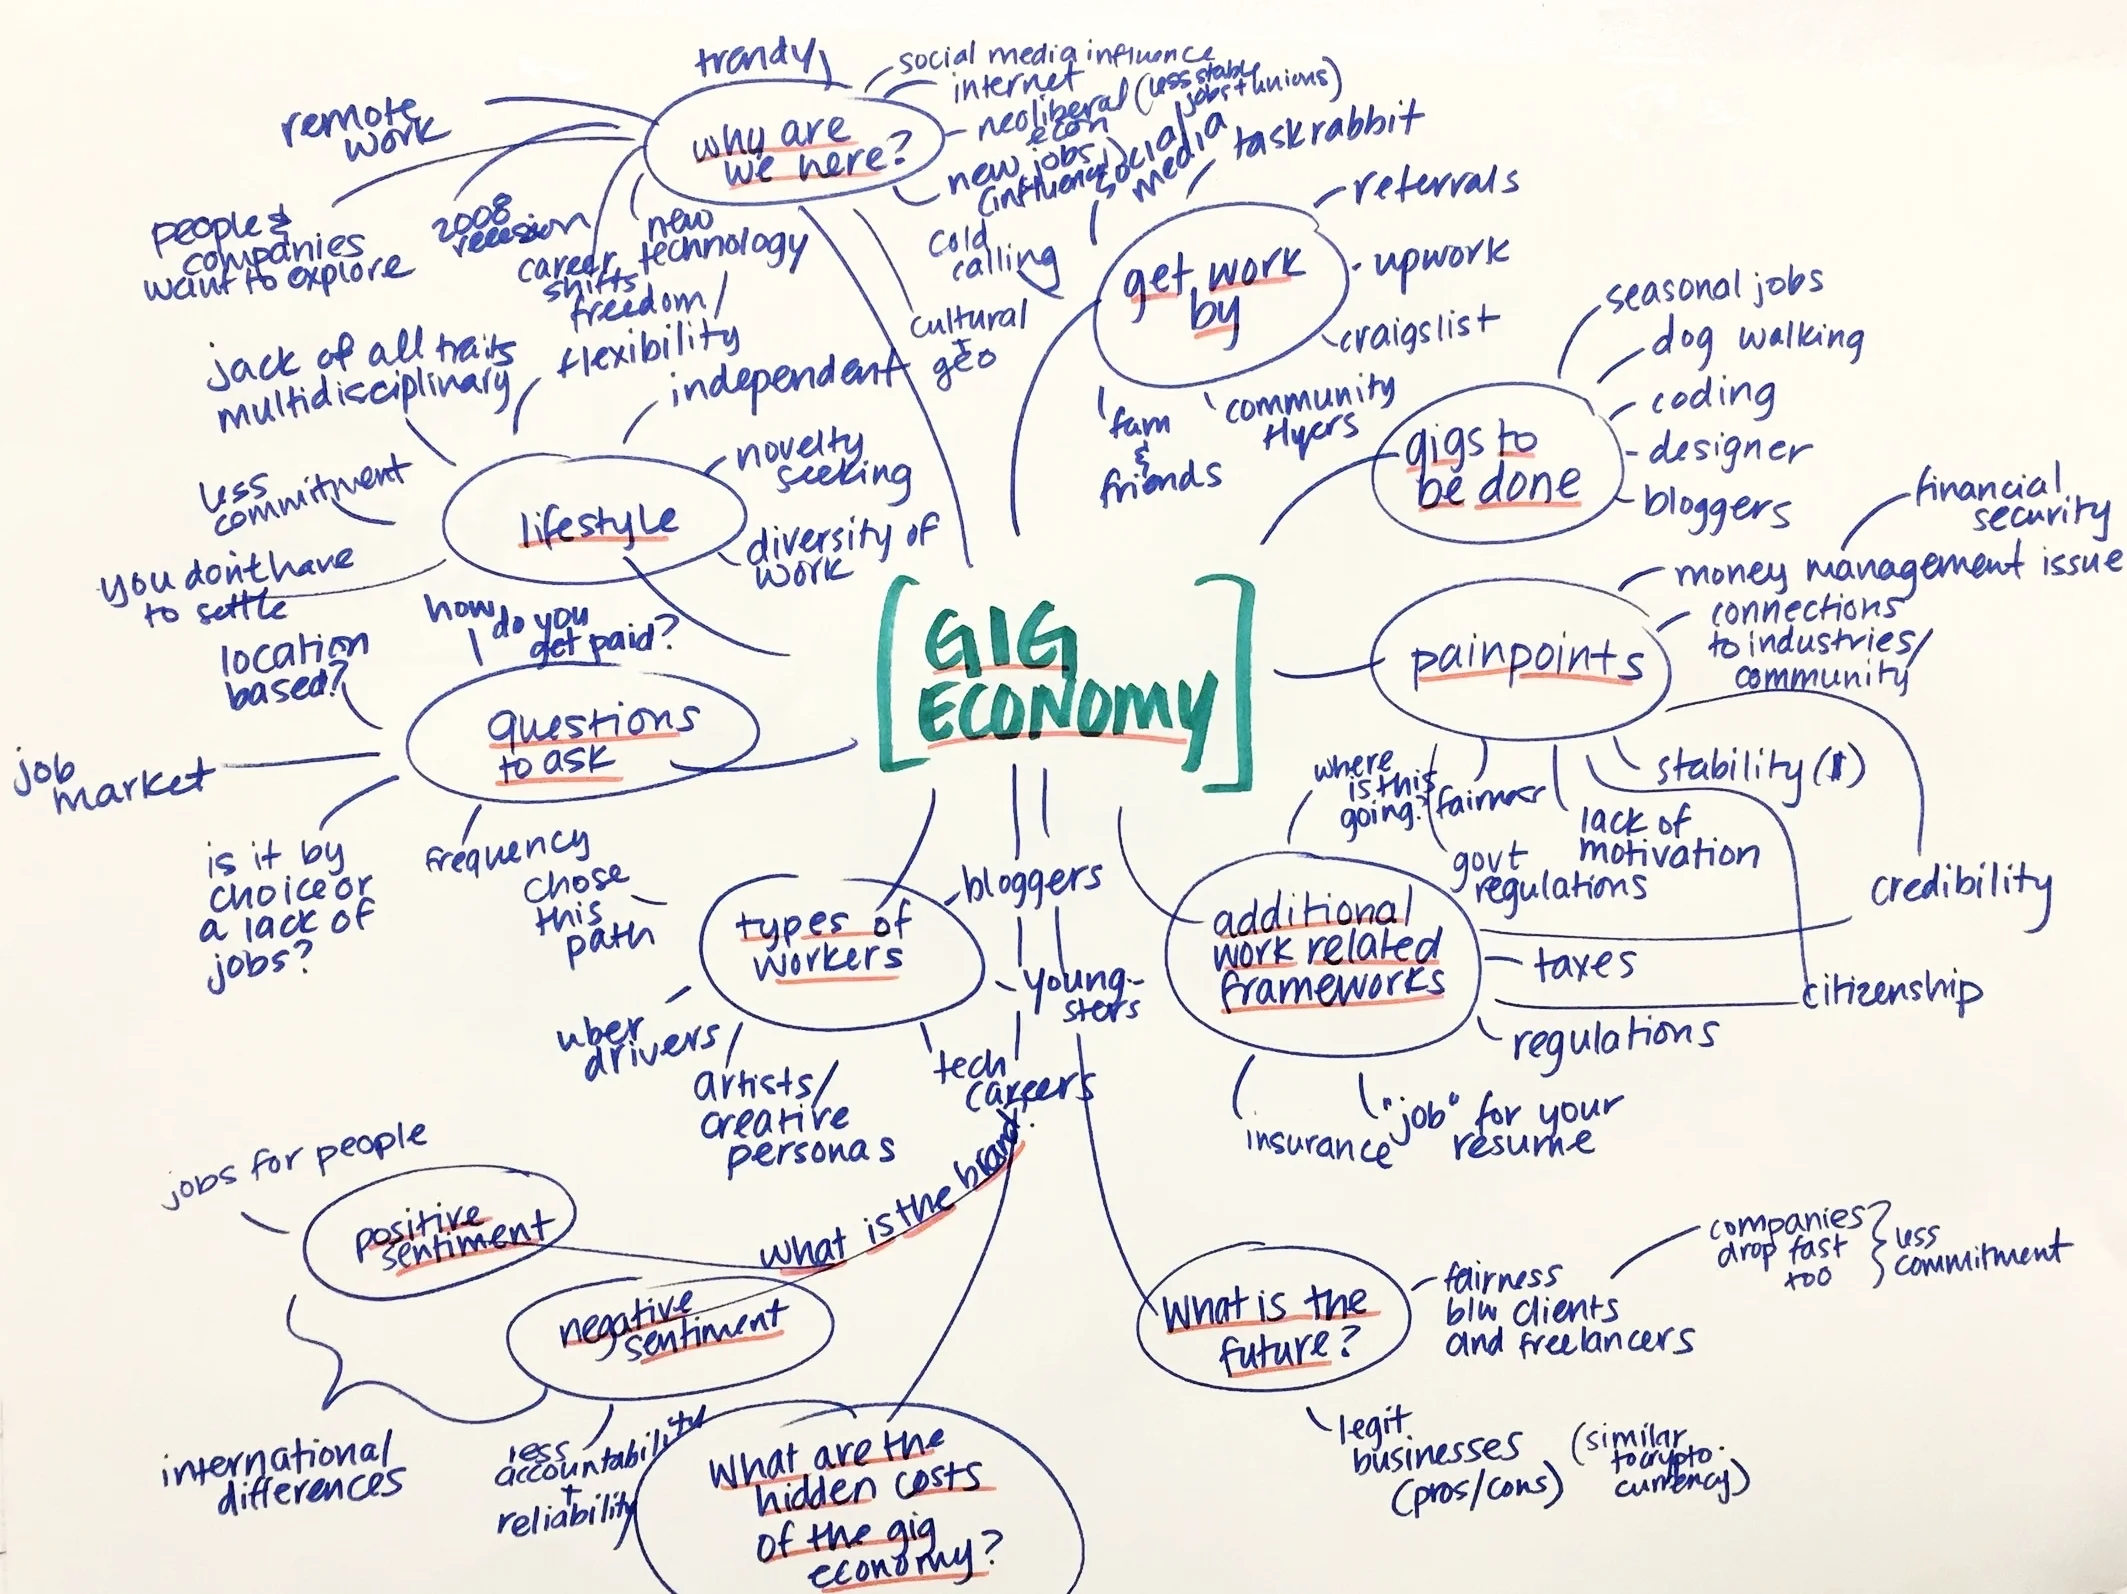 trendy
social media influence
internet
neoliberal (less stable
econ jobs + unions)
new jobs
(influencer)
remote
work
why are
we here?
people &
companies
want to explore
2008
recession
career
shifts
new
technology
cultural
+
geo
social
media
taskrabbit
referrals
cold
calling
get work
by
upwork
craigslist
community
flyers
fam
&
friends
seasonal jobs
dog walking
coding
designer
bloggers
gigs to
be done
jack of all traits
multidisciplinary
freedom/
flexibility
independent
novelty
seeking
diversity of
work
less
commitment
you don't have
to settle
lifestyle
GIG
ECONOMY
financial
security
money management issue
connections
to industries/
community
painpoints
stability ($)
lack of
motivation
fairness
govt
regulations
credibility
citizenship
how do you
get paid?
location
based?
questions
to ask
job
market
is it by
choice or
a lack of
jobs?
frequency
chose
this
path
types of
workers
bloggers
young-
sters
tech
careers
uber
drivers
artists/
creative
personas
where
is this
going?
additional
work related
frameworks
taxes
regulations
insurance
"job" for your
resume
jobs for people
positive
sentiment
what is the brand?
negative
sentiment
international
differences
less
accountability
+
reliability
what are the
hidden costs
of the gig
economy?
what is the
future?
fairness
b/w clients
and freelancers
companies
drop fast
too
less
commitment
legit
businesses
(pros/cons)
(similar
to crypto
currency)